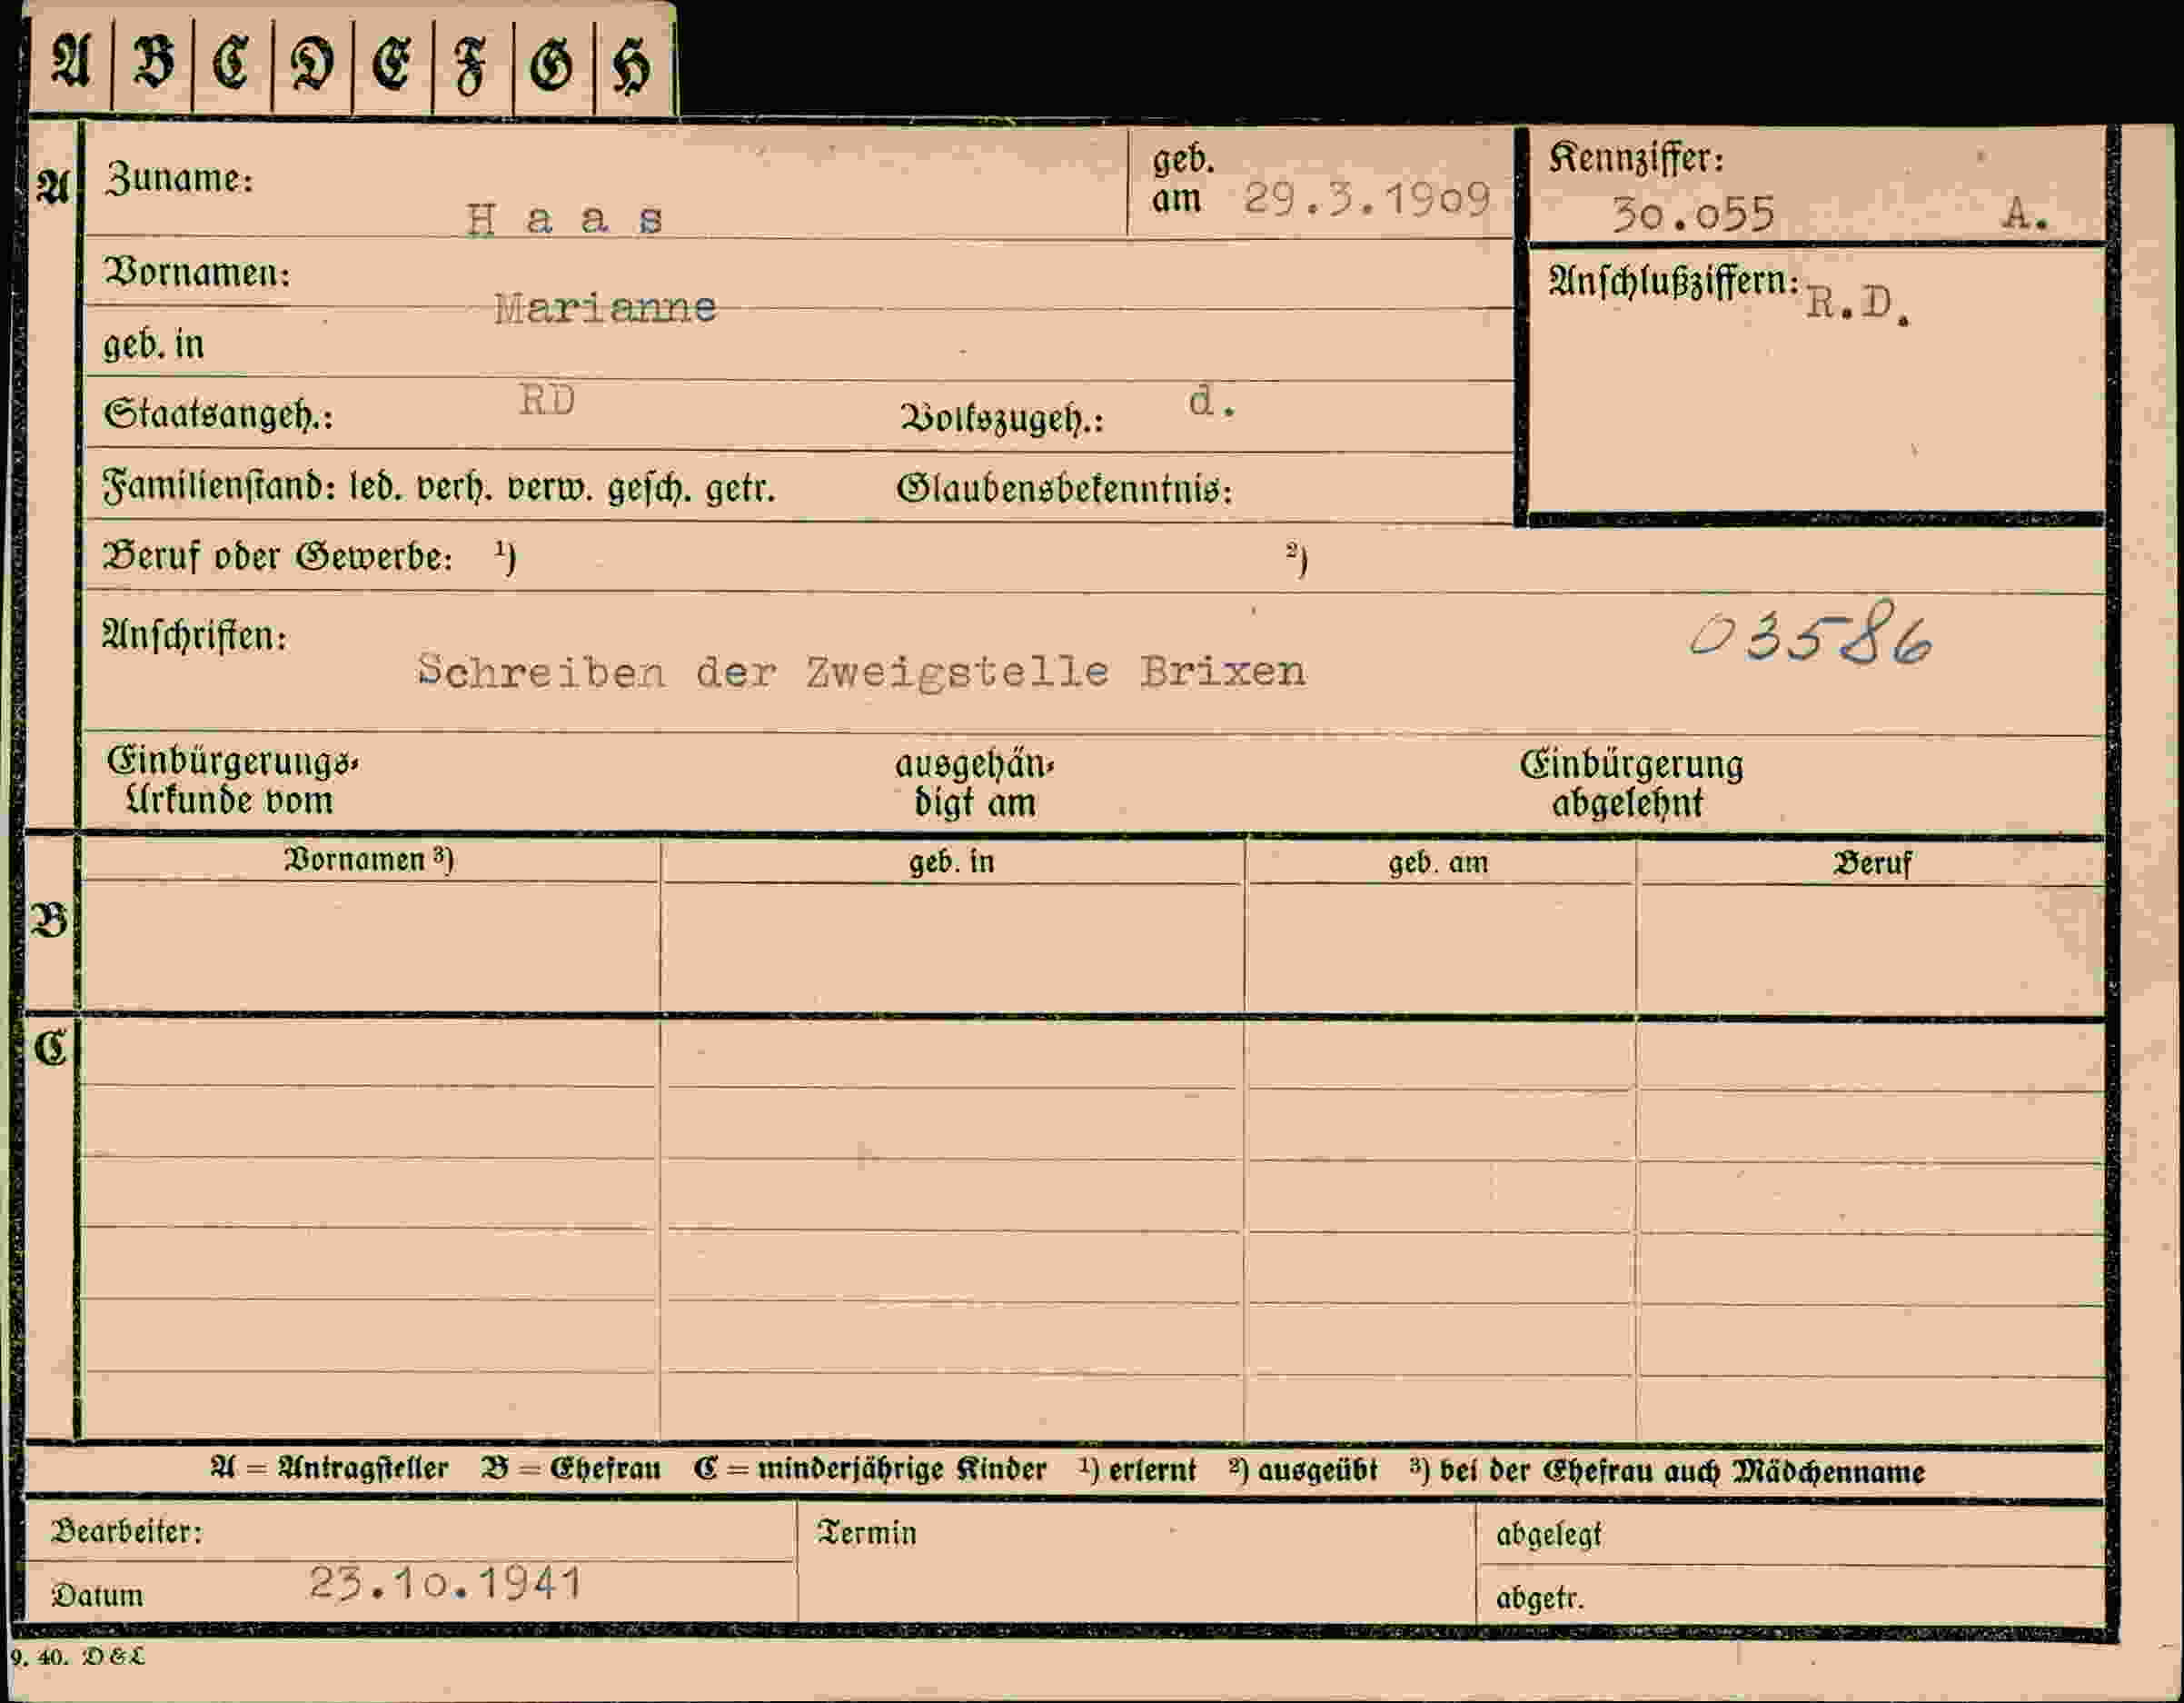 A B C D E F G H
A Zuname: H a a s geb. am 29.3.1909 Kennziffer: 30.055 A.
Vornamen: Marianne Anschlußziffern: R.D.
geb. in
Staatsangeh.: RD Volkszugeh.: d.
Familienstand: led. verh. verw. gesch. getr. Glaubensbekenntnis:
Beruf oder Gewerbe: ¹) ²)
Anschriften: 03586
Schreiben der Zweigstelle Brixen
Einbürgerungs- ausgehän- Einbürgerung
Urkunde vom digt am abgelehnt
Vornamen ³) geb. in geb. am Beruf
B
C
A = Antragsteller B = Ehefrau C = minderjährige Kinder ¹) erlernt ²) ausgeübt ³) bei der Ehefrau auch Mädchenname
Bearbeiter: Termin abgelegt
Datum 23.10.1941 abgetr.
9. 40. D & L